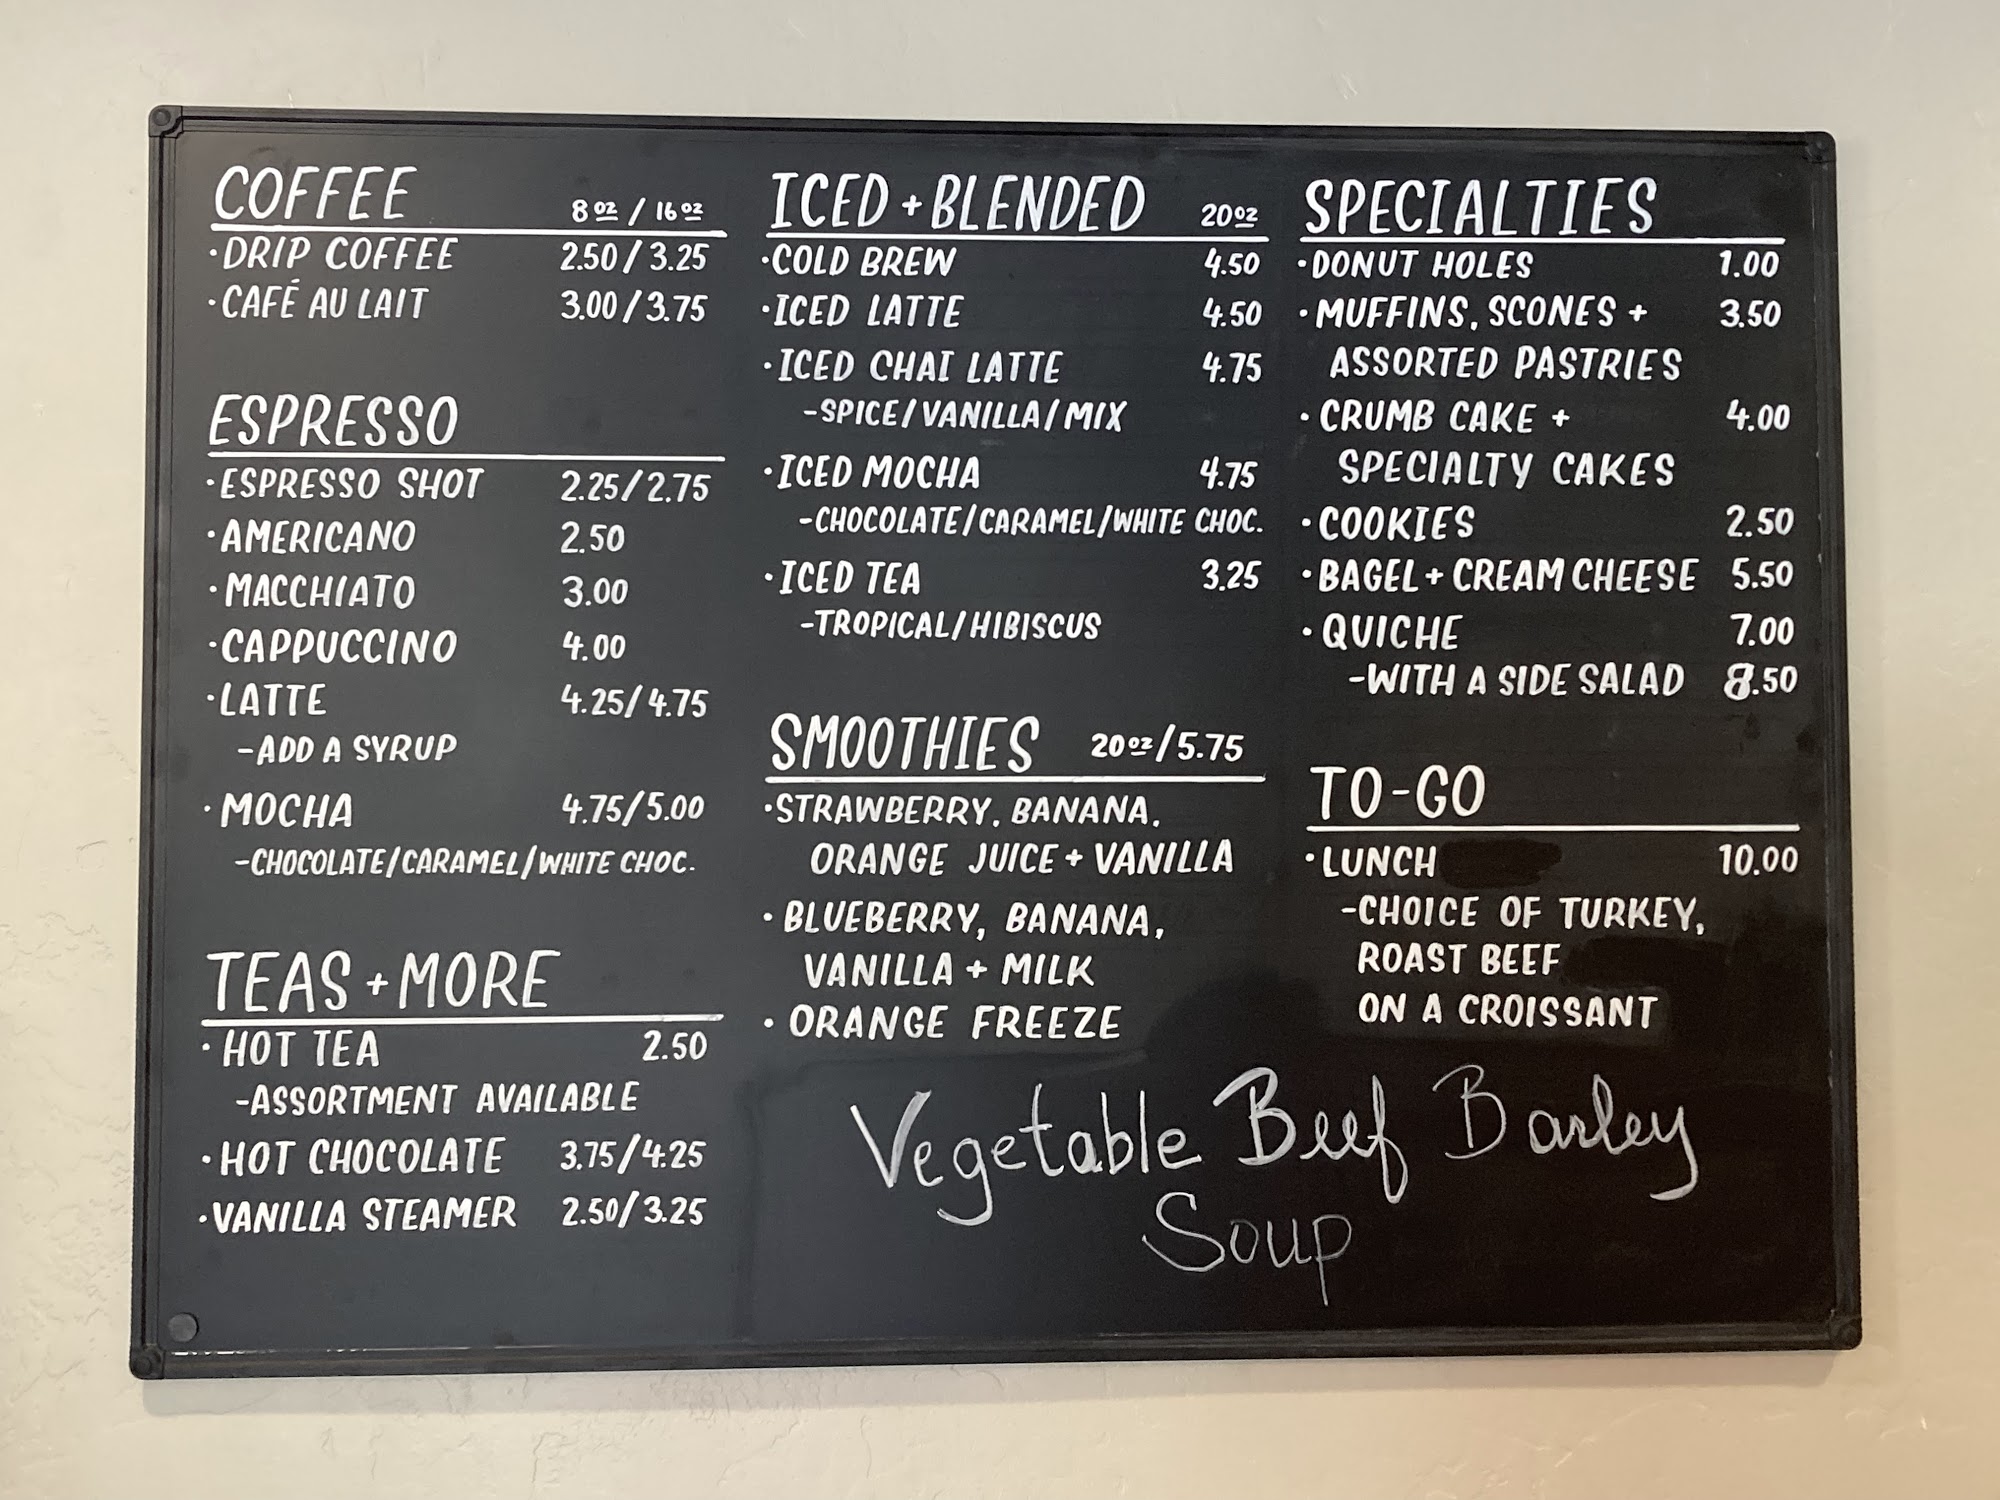 COFFEE 8oz / 16oz
·DRIP COFFEE 2.50 / 3.25
·CAFÉ AU LAIT 3.00 / 3.75
ESPRESSO
·ESPRESSO SHOT 2.25/2.75
·AMERICANO 2.50
·MACCHIATO 3.00
·CAPPUCCINO 4.00
·LATTE 4.25/4.75
-ADD A SYRUP
·MOCHA 4.75/5.00
-CHOCOLATE/CARAMEL/WHITE CHOC.
TEAS + MORE
·HOT TEA 2.50
-ASSORTMENT AVAILABLE
·HOT CHOCOLATE 3.75/4.25
·VANILLA STEAMER 2.50/3.25
ICED + BLENDED 20oz
·COLD BREW 4.50
·ICED LATTE 4.50
·ICED CHAI LATTE 4.75
-SPICE/VANILLA/MIX
·ICED MOCHA 4.75
-CHOCOLATE/CARAMEL/WHITE CHOC.
·ICED TEA 3.25
-TROPICAL/HIBISCUS
SMOOTHIES 20oz/5.75
·STRAWBERRY, BANANA,
ORANGE JUICE + VANILLA
·BLUEBERRY, BANANA,
VANILLA + MILK
·ORANGE FREEZE
SPECIALTIES
·DONUT HOLES 1.00
·MUFFINS, SCONES + 3.50
ASSORTED PASTRIES
·CRUMB CAKE + 4.00
SPECIALTY CAKES
·COOKIES 2.50
·BAGEL + CREAM CHEESE 5.50
·QUICHE 7.00
-WITH A SIDE SALAD 8.50
TO-GO
·LUNCH 10.00
-CHOICE OF TURKEY,
ROAST BEEF
ON A CROISSANT
Vegetable Beef Barley
Soup